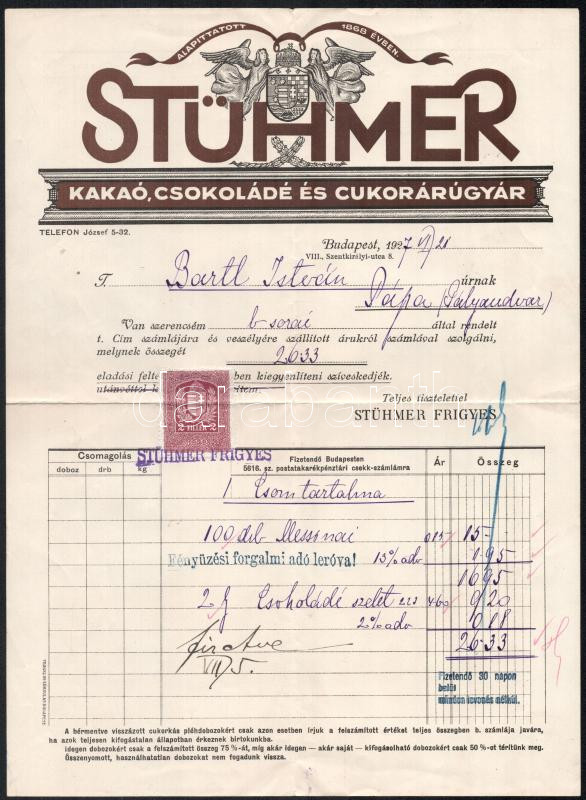 ALAPITTATOTT 1868 ÉVBEN.
STÜHMER
KAKAÓ, CSOKOLÁDÉ ÉS CUKORÁRÚGYÁR
TELEFON József 5-32.
Budapest, 1927 VI/21
VIII., Szentkirályi-utca 8.
T. Bartl István úrnak
Pápa (Pályaudvar)
Van szerencsém b sorai által rendelt
t. Cím számlájára és veszélyére szállított árukról számlával szolgálni,
melynek összegét 26.33
eladási felté ben kiegyenlíteni szíveskedjék.
Teljes tisztelettel
STÜHMER FRIGYES
STÜHMER FRIGYES
Csomagolás Fizetendő Budapesten Ár Összeg
doboz drb kg 5616. sz. postatakarékpénztári csekk-számlámra
1 Csom tartalma
100 drb Messinai 015 15-
Fényűzési forgalmi adó leróva! 13% adó 1.95
16.95
2 Csokoládé szelet 4.60 9.20
2% adó 0.18
26.33
VII/5.
Fizetendő 30 napon
belül
minden levonás nélkül.
A bérmentve visszázott cukorkás pléhdobozokért csak azon esetben irjuk a felszámított értéket teljes összegben b. számlája javára,
ha azok teljesen kifogástalan állapotban érkeznek birtokunkba.
Idegen dobozokért csak a felszámított összeg 75 %-át, míg akár idegen — akár saját — kifogásolható dobozokért csak 50 %-ot térítünk meg.
Összenyomott, használhatatlan dobozokat nem fogadunk vissza.